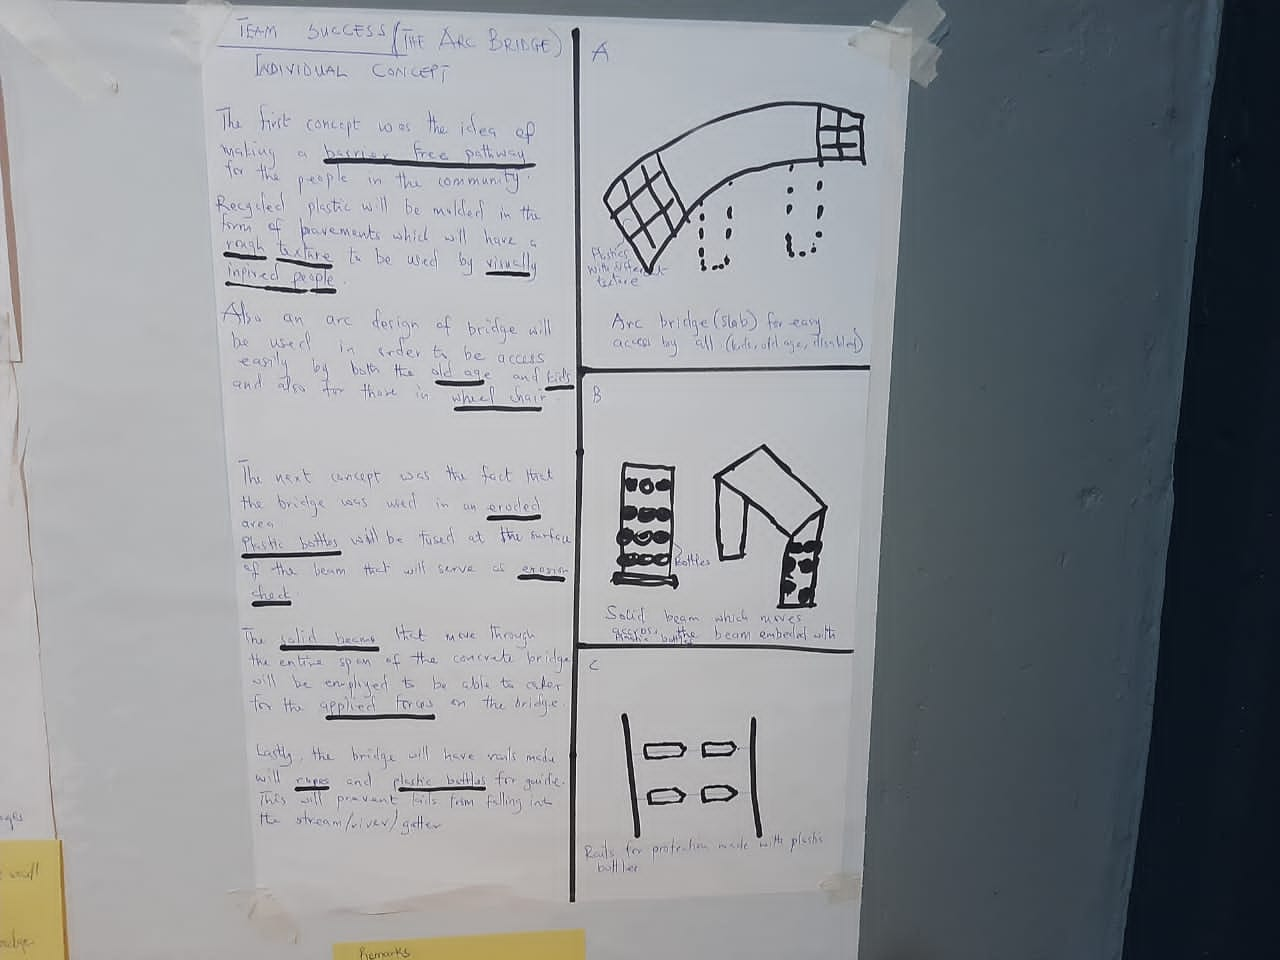 TEAM SUCCESS (THE ARC BRIDGE)
INDIVIDUAL CONCEPT
The first concept was the idea of
making a barrier free pathway
for the people in the community.
Recycled plastic will be molded in the
form of pavements which will have a
rough texture to be used by visually
inpired people.
Also an arc design of bridge will
be used in order to be access
easily by both the old age and kids
and also for those in wheel chair
The next concept was the fact that
the bridge was used in an eroded
area.
Plastic bottles will be fused at the surface
of the beam that will serve as erosion
check.
The solid beams that move through
the entire span of the concrete bridge
will be employed to be able to cater
for the applied forces on the bridge.
Lastly, the bridge will have rails made
will ropes and plastic bottles for guide.
This will prevent falls from falling into
the stream/river/gutter
A
Plastics
with different
texture
Arc bridge (slab) for easy
access by all (kids, old age, disabled)
B
Bottles
Solid beam which moves
accross the beam embeded with
plastic bottles
C
Rails for protection made with plastic
bottles
ages
wall
bridge
Remarks